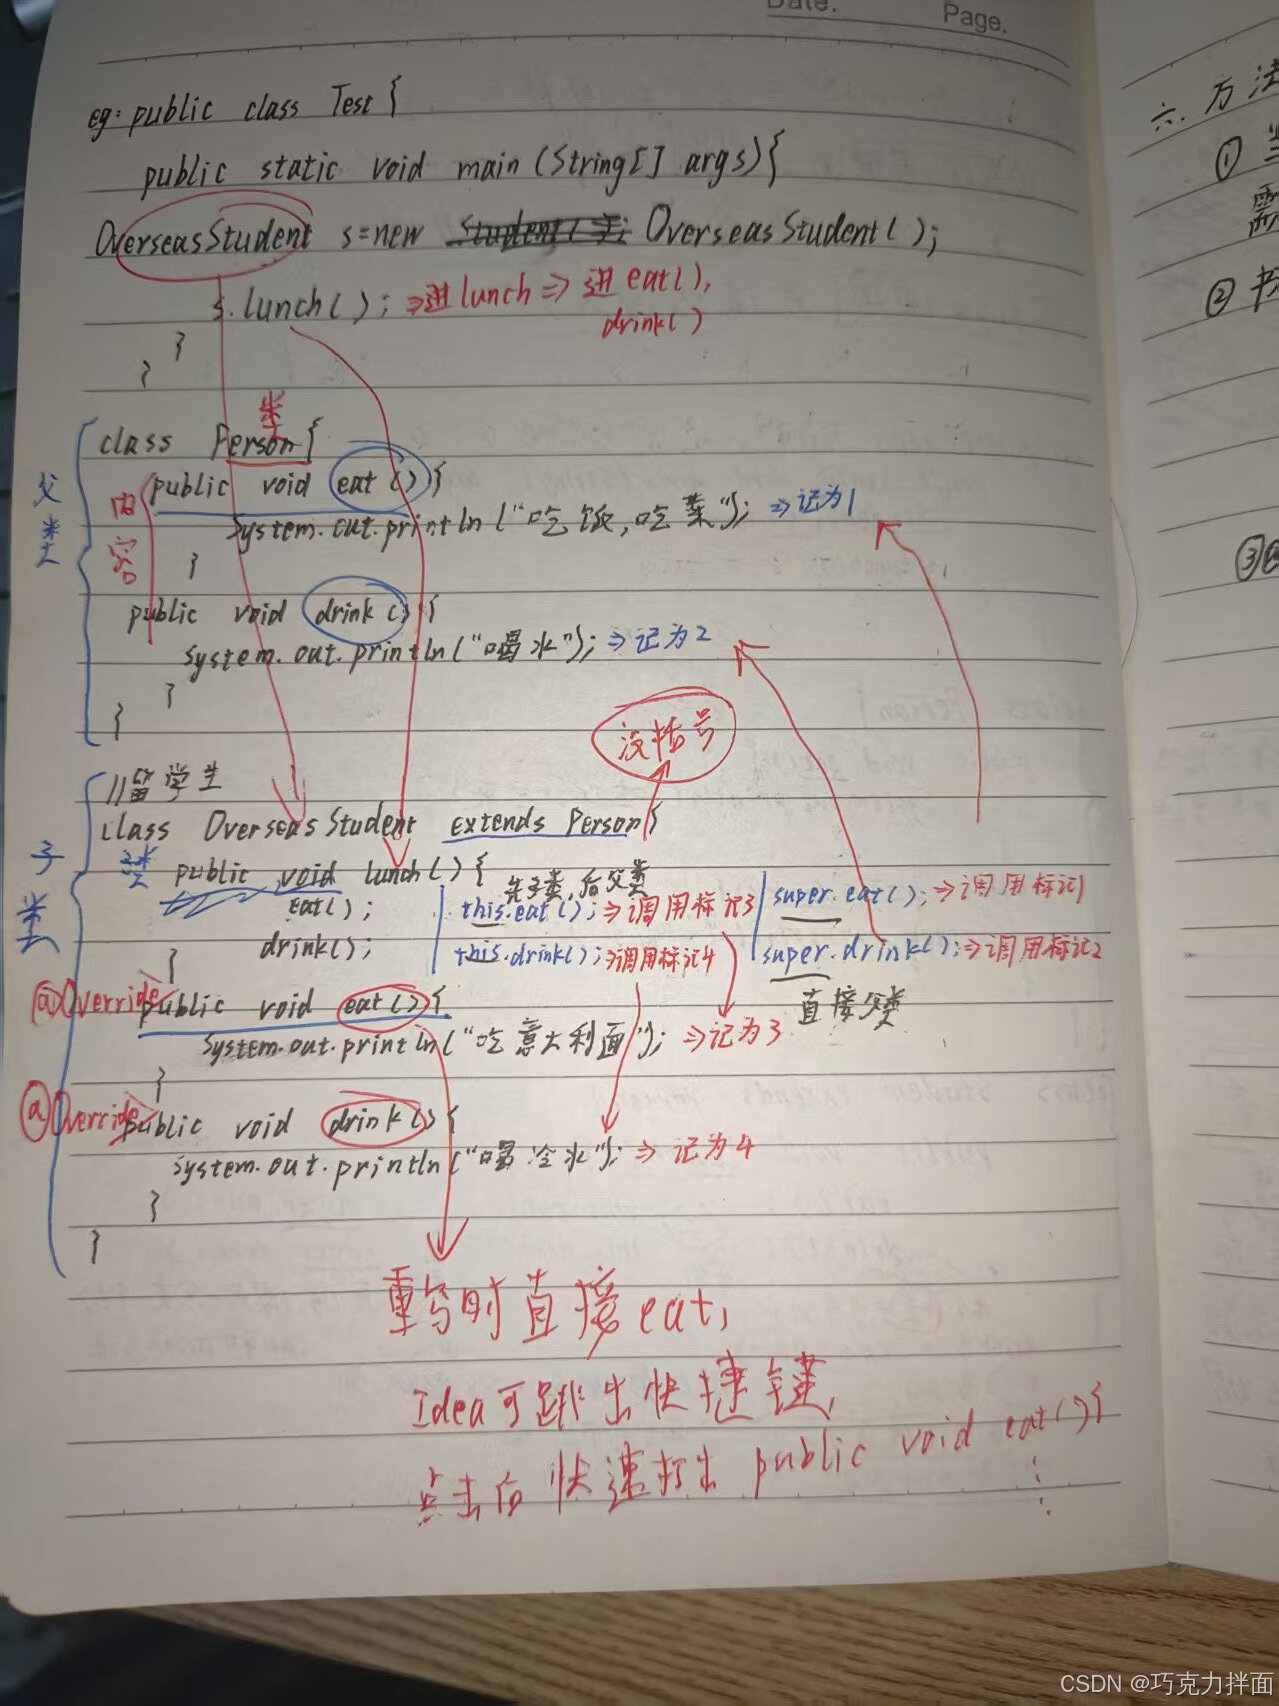 Date.
Page.
eg: public class Test {
public static void main (String[] args){
OverseasStudent s=new OverseasStudent();
s.lunch(); ⇒进lunch⇒进eat(),
drink()
}
}
父类
class Person{
类
内容
public void eat(){
System.out.println("吃饭,吃菜"); ⇒记为1
}
public void drink(){
System.out.println("喝水"); ⇒记为2
}
}
没括号
子类
//留学生
class OverseasStudent extends Person{
public void lunch(){
先子类,后父类
eat(); this.eat();⇒调用标记3 super.eat();⇒调用标记1
drink(); this.drink();⇒调用标记4 super.drink();⇒调用标记2
}
直接父类
@Override
public void eat(){
System.out.println("吃意大利面"); ⇒记为3
}
@Override
public void drink(){
System.out.println("喝冷水"); ⇒记为4
}
}
重写时直接eat,
Idea可跳出快捷键,
点击后快速打出 public void eat(){
六.方法
①
②
③
CSDN @巧克力拌面